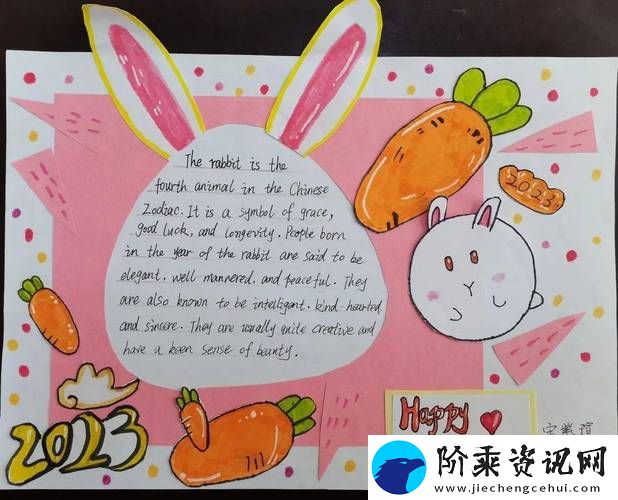 The rabbit is the
fourth animal in the Chinese
Zodiac. It is a symbol of grace,
good luck, and longevity. People born
in the year of the rabbit are said to be
elegant. well mannered. and peaceful. They
are also known to be intelligent. kind hearted
and sincere. They are usually quite creative and
have a keen sense of beauty.
2023
2023
Happy
阶乘资讯网
www.jiechengcehui.com